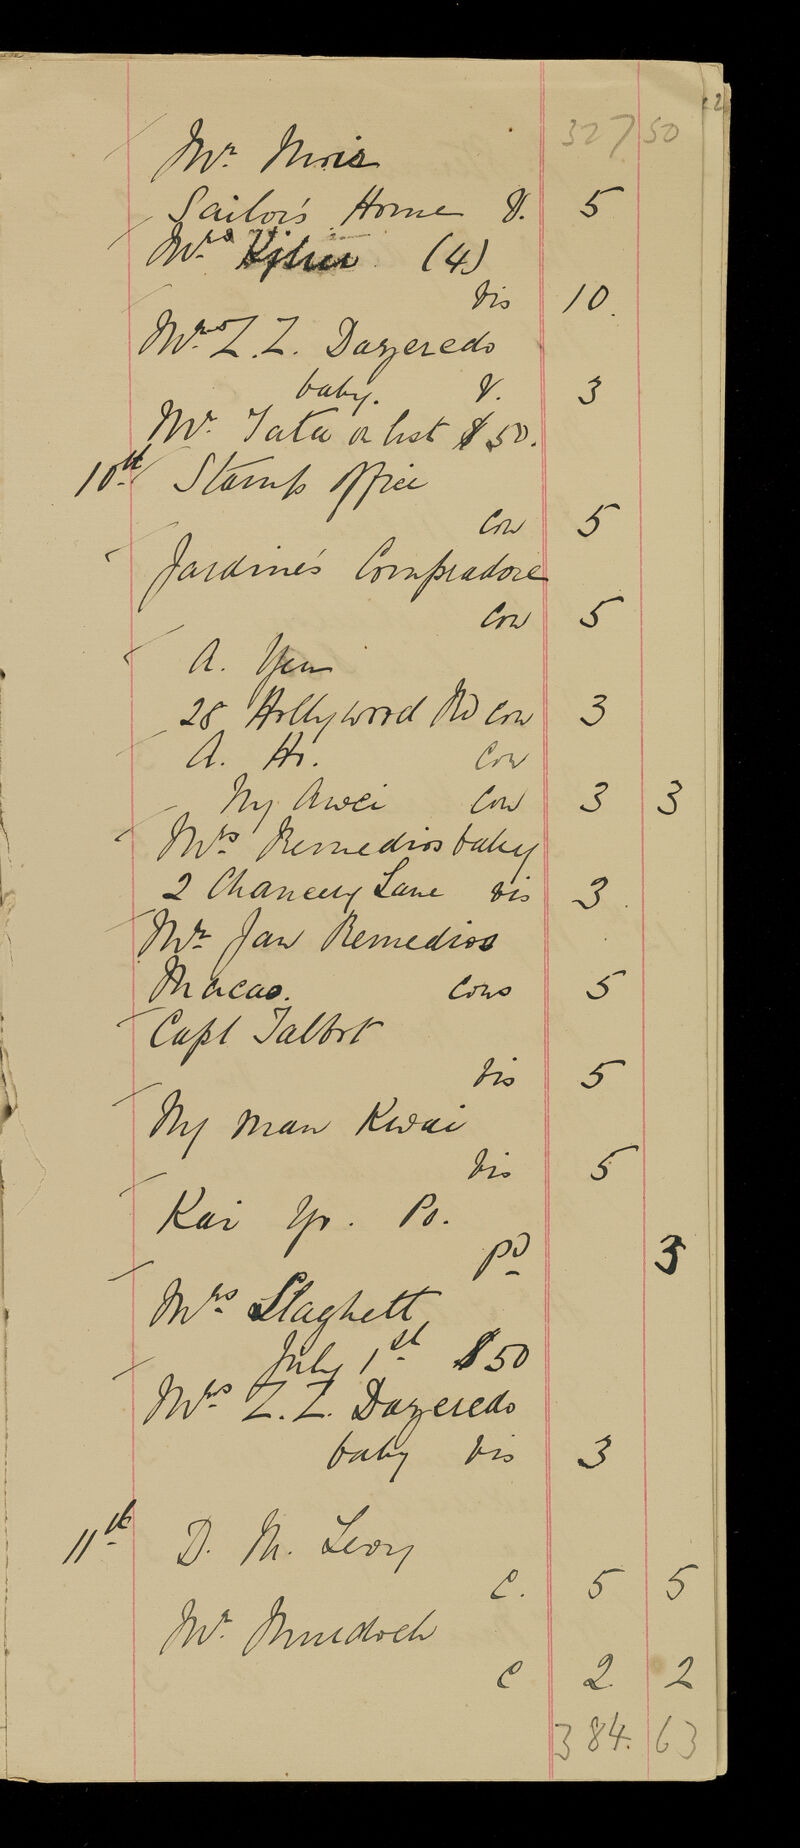 327 50
Mr.
Sailor's Home V. 5
Mrs. (4)
Vis 10.
Mrs Z.Z. Dazeredo
baby. V. 3
Mr. Tata a list $50.
10th Stamp Office
Con 5
Jardine's Compradore
Con 5
A. Yun
28 Hollywood Rd Con 3
A. Ho. Con
Ny Awei Con 3 3
Mrs Remedios baby
2 Chancery Lane Vis 3.
Mr. Jan Remedios
Macao. Cons 5
Capt Talbot
Vis 5
Ny man Kwai
Vis 5
Kai Yo. Po.
Pd 3
Mrs Slaghett
July 1st $50
Mrs Z.Z. Dazeredo
baby Vis 3
11th D. M. Levy
C. 5 5
Mr. Murdoch
C 2 2
384. 63